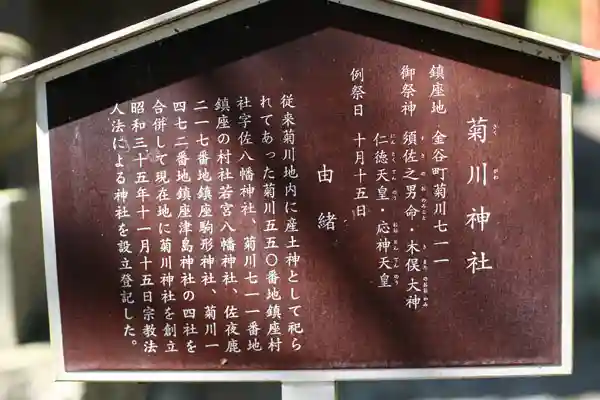 菊川神社
きくがわ
鎮座地　金谷町菊川七一一
御祭神　須佐之男命・木俣大神
すさのおのみこと　きまたのおおかみ
仁徳天皇・応神天皇
にんとくてんのう　おおじんてんのう
例祭日　十月十五日
由緒
従来菊川地内に産土神として祀ら
れてあった菊川五五〇番地鎮座村
社字佐八幡神社、菊川七一一番地
鎮座の村社若宮八幡神社、佐夜鹿
二一七番地鎮座駒形神社、菊川一
四七二番地鎮座津島神社の四社を
合併して現在地に菊川神社を創立
昭和三十五年十一月十五日宗教法
人法による神社を設立登記した。